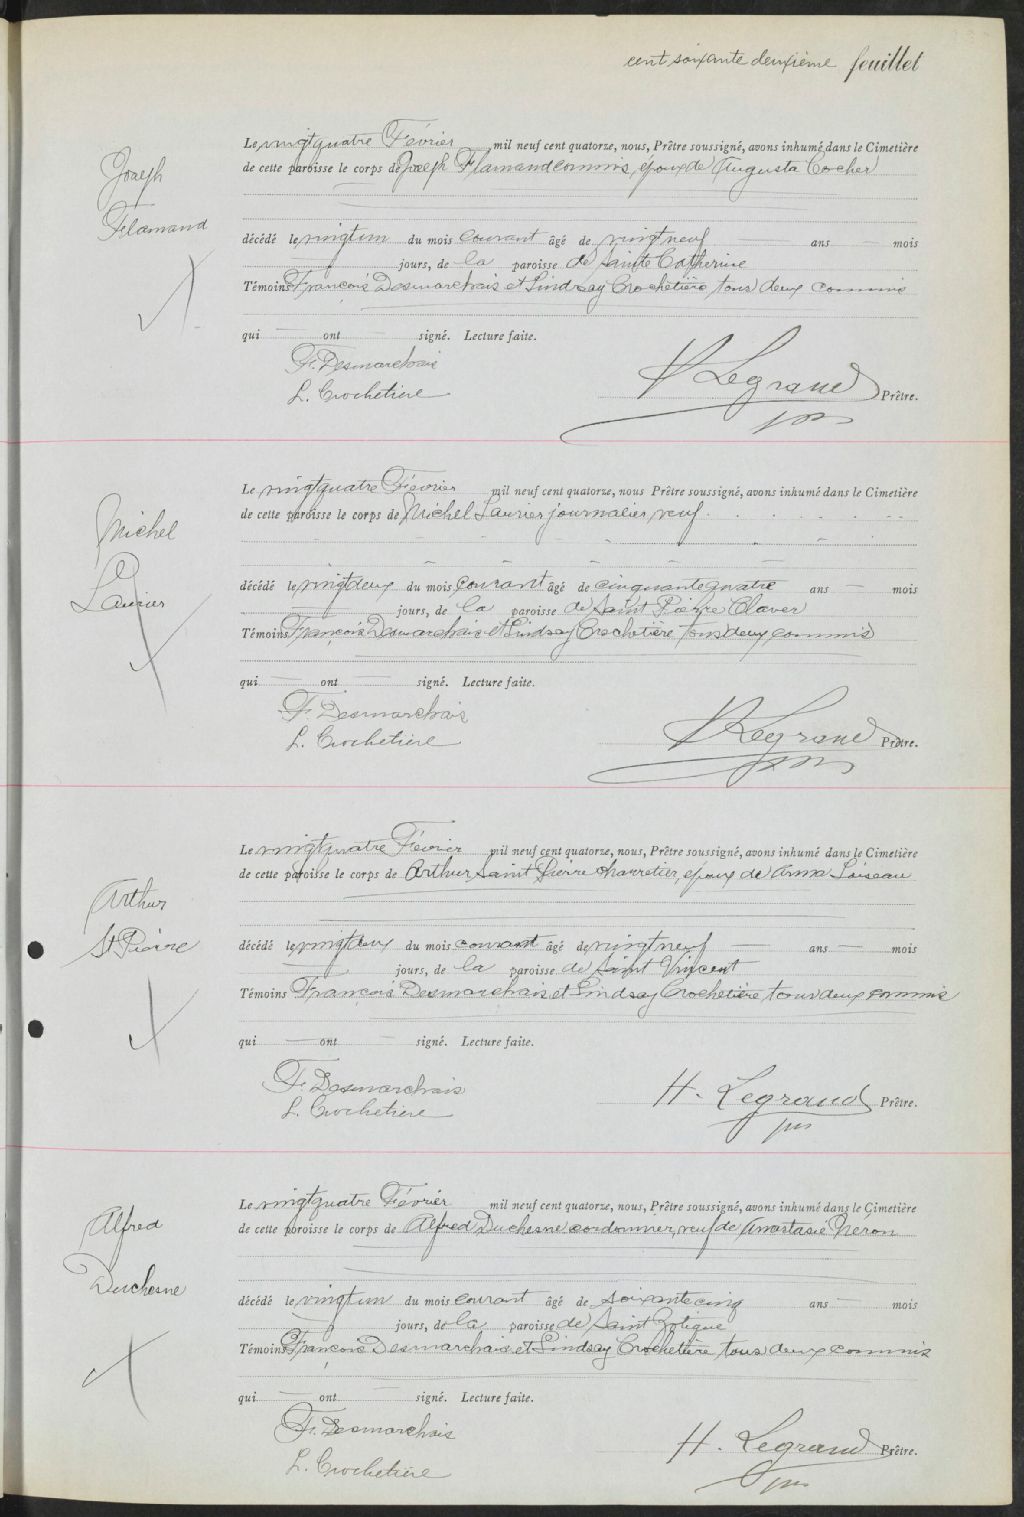 cent soixante deuxième feuillet
Joseph
Flamand
Le vingtquatre Février mil neuf cent quatorze, nous, Prêtre soussigné, avons inhumé dans le Cimetière
de cette paroisse le corps de Joseph Flamand commis, époux de Augusta Cocher
décédé le vingtun du mois courant âgé de vingt neuf ans mois
jours, de la paroisse de Sainte Catherine
Témoins François Desmarchais et Lindsay Crochetière tous deux commis
qui ont signé. Lecture faite.
F. Desmarchais
L. Crochetière
H Legrand Prêtre.
Michel
Laurier
Le vingtquatre Février mil neuf cent quatorze, nous Prêtre soussigné, avons inhumé dans le Cimetière
de cette paroisse le corps de Michel Laurier journalier, veuf
décédé le vingtdeux du mois courant âgé de cinquantequatre ans mois
jours, de la paroisse de Saint Pierre Claver
Témoins François Desmarchais et Lindsay Crochetière tous deux commis
qui ont signé. Lecture faite.
F. Desmarchais
L. Crochetière
H Legrand Prêtre.
Arthur
St Pierre
Le vingtquatre Février mil neuf cent quatorze, nous, Prêtre soussigné, avons inhumé dans le Cimetière
de cette paroisse le corps de Arthur Saint Pierre charretier, époux de Anna Loiseau
décédé le vingtdeux du mois courant âgé de vingtneuf ans mois
jours, de la paroisse de Saint Vincent
Témoins François Desmarchais et Lindsay Crochetière tous deux commis
qui ont signé. Lecture faite.
F. Desmarchais
L. Crochetière
H. Legrand Prêtre.
ptre
Alfred
Duchesne
Le vingtquatre Février mil neuf cent quatorze, nous, Prêtre soussigné, avons inhumé dans le Cimetière
de cette paroisse le corps de Alfred Duchesne cordonnier, veuf de Anastasie Neron
décédé le vingtun du mois courant âgé de soixantecinq ans mois
jours, de la paroisse de Saint Zotique
Témoins François Desmarchais et Lindsay Crochetière tous deux commis
qui ont signé. Lecture faite.
F. Desmarchais
L. Crochetière
H. Legrand Prêtre.
ptre